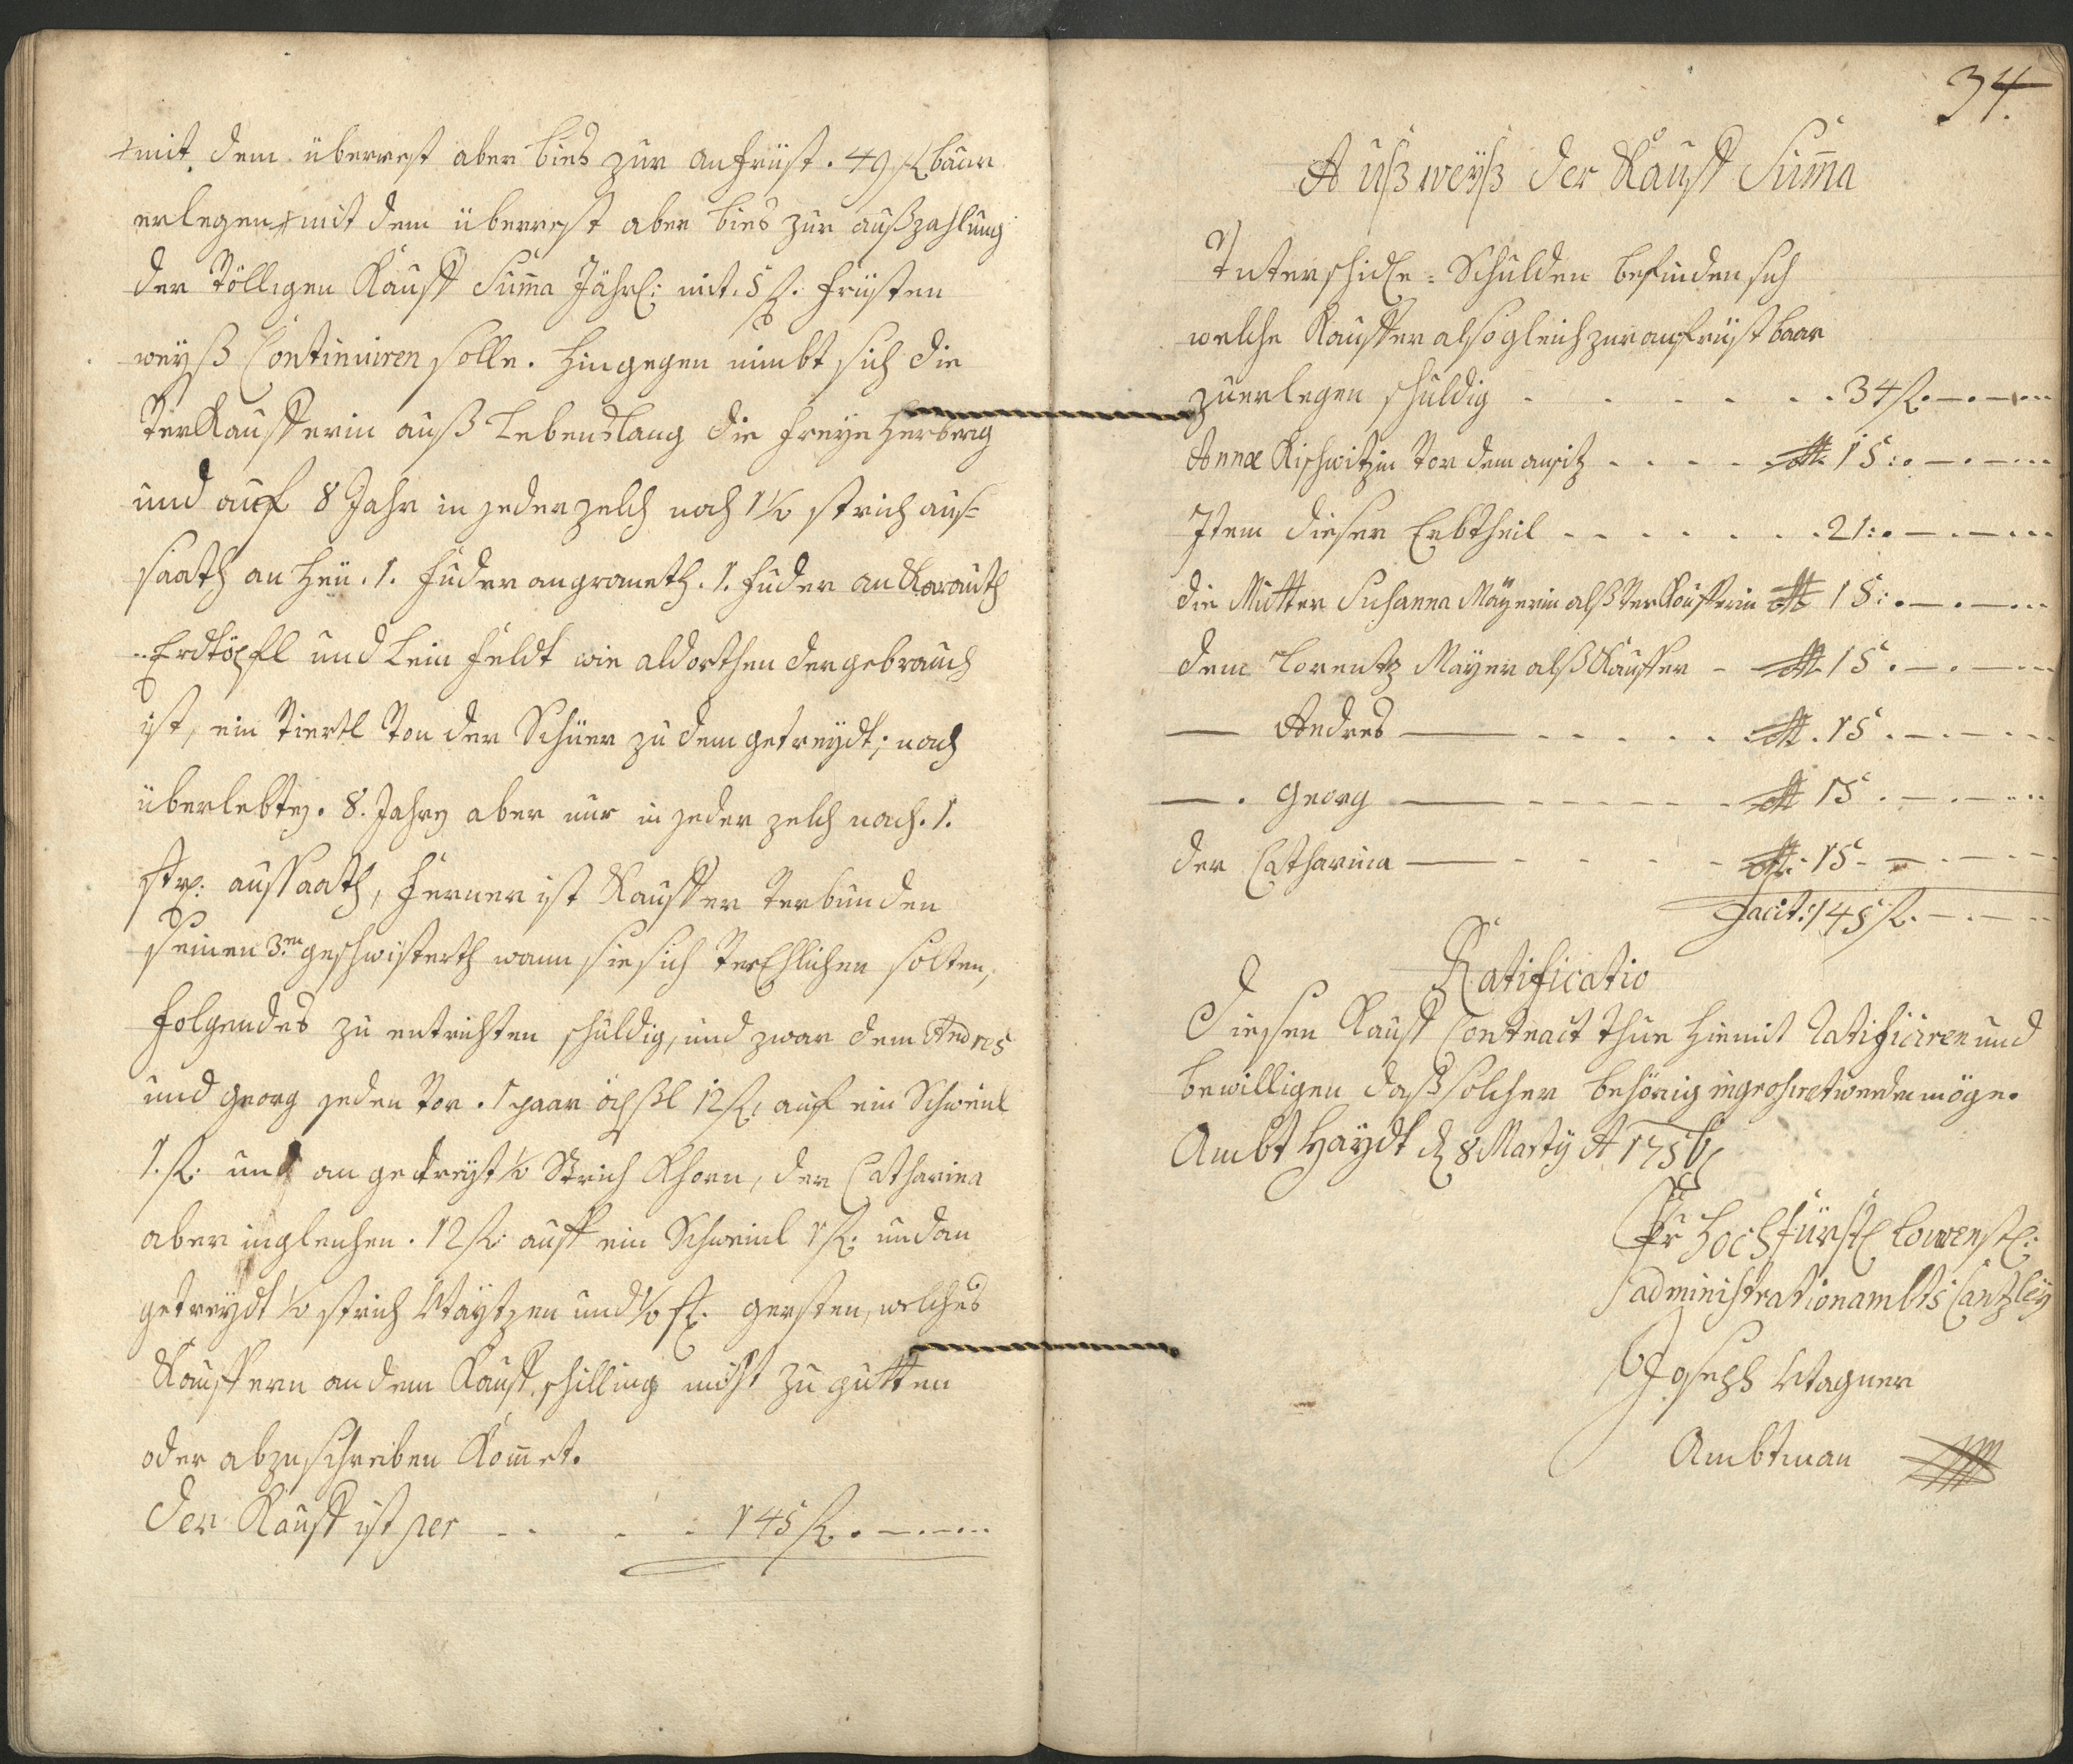 mit dem überrest aber bies zur anfrüst . 49 fl baar
erlegen, mit dem überrest aber bies zur außzahlung
der völligen Kauff Suma Jährl: mit 5 fl. früsten
weyß Continuiren solle. hingegen nimbt sich die
Verkaufferin auß Lebenslang die freye Herberg
und auf 8 Jahr in jeder zelch nach 1½ strich auß=
saath an heü . 1. fuder an grameth . 1. fuder an Krauth
Erdtöpfl und Lein feldt wie aldorthen der gebrauch
ist, ein Viertl von der Scheuer zu dem getreydt; nach
überlebten . 8. Jahren aber nur in jeder zelch nach . 1.
str: aussaath, ferner ist Kauffer verbunden
seinen 3.en geschwisterth wann sie sich verEhlichen solten,
folgendes zu entrichten schuldig, und zwar dem Andres
und Georg jeden vor . 1 paar öchßl 12 fl, auf ein Schweinl
1. fl. und an getreyt ½ Strich Khorn, der Catharina
aber ingleichen . 12 fl: auff ein Schweinl 1 fl. und an
getreydt ½ strich Waytzen und ½ st. gersten, welches
Kauffern an dem Kauff schilling nicht zu gutten
oder abzuschreiben Komet.
Der Kauff ist per - - - - 145 fl. - . - . - ...
34.
Außweyß der Kauff Suma
Interschidle = Schulden befinden sich
welche Kauffer alsogleich zur anfrüst baar
zuerlegen schuldig - - - - - - 34 fl. - . - . - ...
Annae Kischwitzin vor dem ansitz - - - - 15 : . - . - ...
Item dieser Erbtheil - - - - - - - 21 : . - . - ...
die Mutter Susanna Mayerin alß Verkaufferin 15 : . - . - ...
dem Lorentz Mayer alß Kauffer - 15 . - . - ...
— Andres — - - - - - 15 . - . - ...
— . Georg — - - - - - - 15 . - . - ...
der Catharina — - - - - - 15 - . - . - ...
Facit: 145 fl. - . - ...
Ratificatio
Diesen Kauff Contract thue hiemit ratificiren und
bewilligen daß solcher behörig ingrossiret werden möge.
Ambt Haydt d 8 Marty A 1756
Hochfürstl Löwenstl:
administrationambts Cantzley
Joseph Wagner
Ambtman